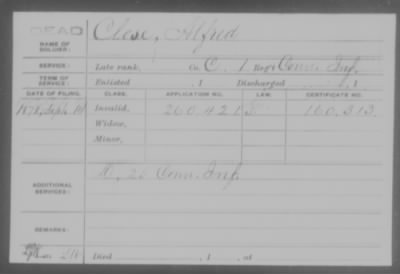 DEAD
NAME OF SOLDIER: Close, Alfred
SERVICE: Late rank, Co. C, 1 Reg't Conn. Inf.
TERM OF SERVICE: Enlisted , 1 Discharged , 1
DATE OF FILING. CLASS. APPLICATION NO. LAW. CERTIFICATE NO.
1878, Sept. Invalid, 260,421 160,313
Widow,
Minor,
ADDITIONAL SERVICES: 20 Conn. Inf.
REMARKS:
Died , 1 , at